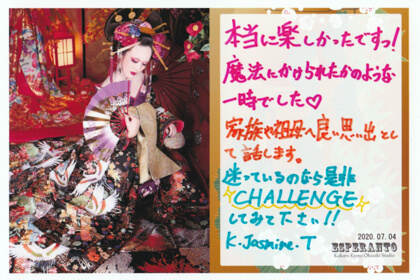 本当に楽しかったですっ!
魔法にかけられたかのような
一時でした♡
家族や祖母へ良い思い出とし
て話します。
迷っているのなら是非
CHALLENGE
してみて下さい!!
K.Jasmine.T
2020.07.04
ESPERANTO
Kokoro Kyoto Okazaki Studio